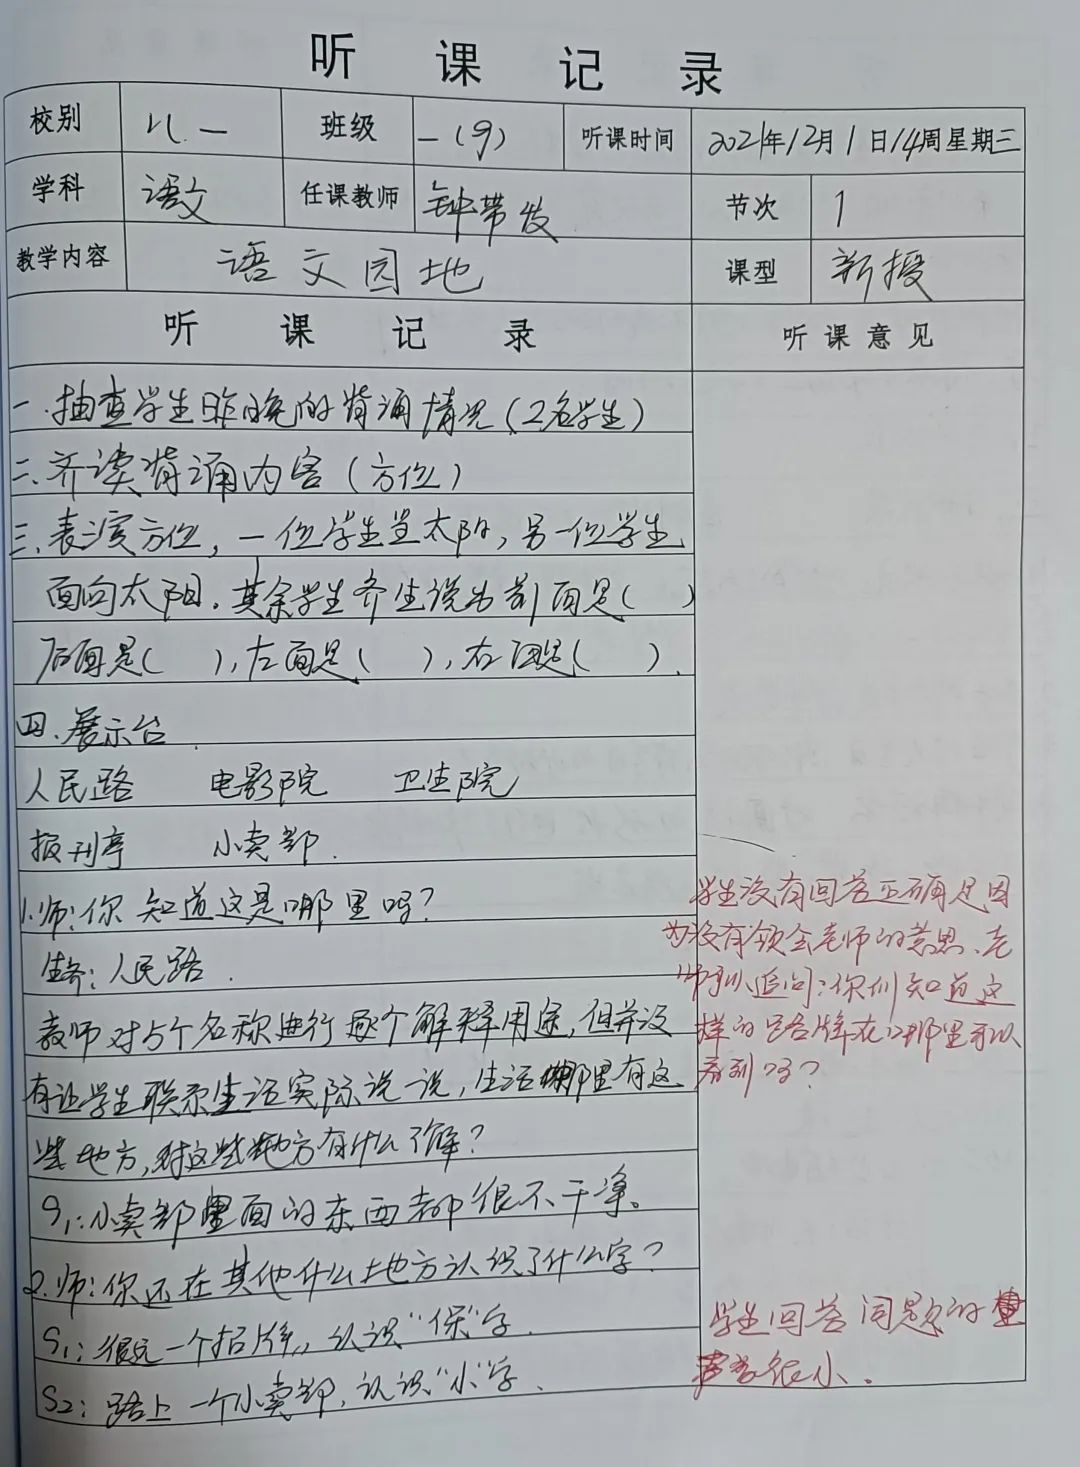 听课记录
校别 八一 班级 一(9) 听课时间 2021年12月1日14周星期三
学科 语文 任课教师 钟带发 节次 1
教学内容 语文园地 课型 新授
听课记录 听课意见
一.抽查学生昨晚的背诵情况(2名学生)
二.齐读背诵内容(方位)
三.表演方位,一位学生当太阳,另一位学生
面向太阳.其余学生齐生说出前面是( )
后面是( ),左面是( ),右面是( ).
四.展示台.
人民路 电影院 卫生院
报刊亭 小卖部.
1.师:你知道这是哪里吗?
生齐:人民路.
教师对5个名称进行逐个解释用途,但并没
有让学生联系生活实际说一说,生活哪里有这
些地方,对这些地方有什么了解?
S1:小卖部里面的东西都很不干净。
2.师:你还在其他什么地方认识了什么字?
S1:很远一个招牌,认识"保"字.
S2:路上一个小卖部,认识"小"字.
学生没有回答正确是因
为没有领会老师的意思.老
师可以追问:你们知道这
样的路牌在哪里可以
看到吗?
学生回答问题的
声音很小.